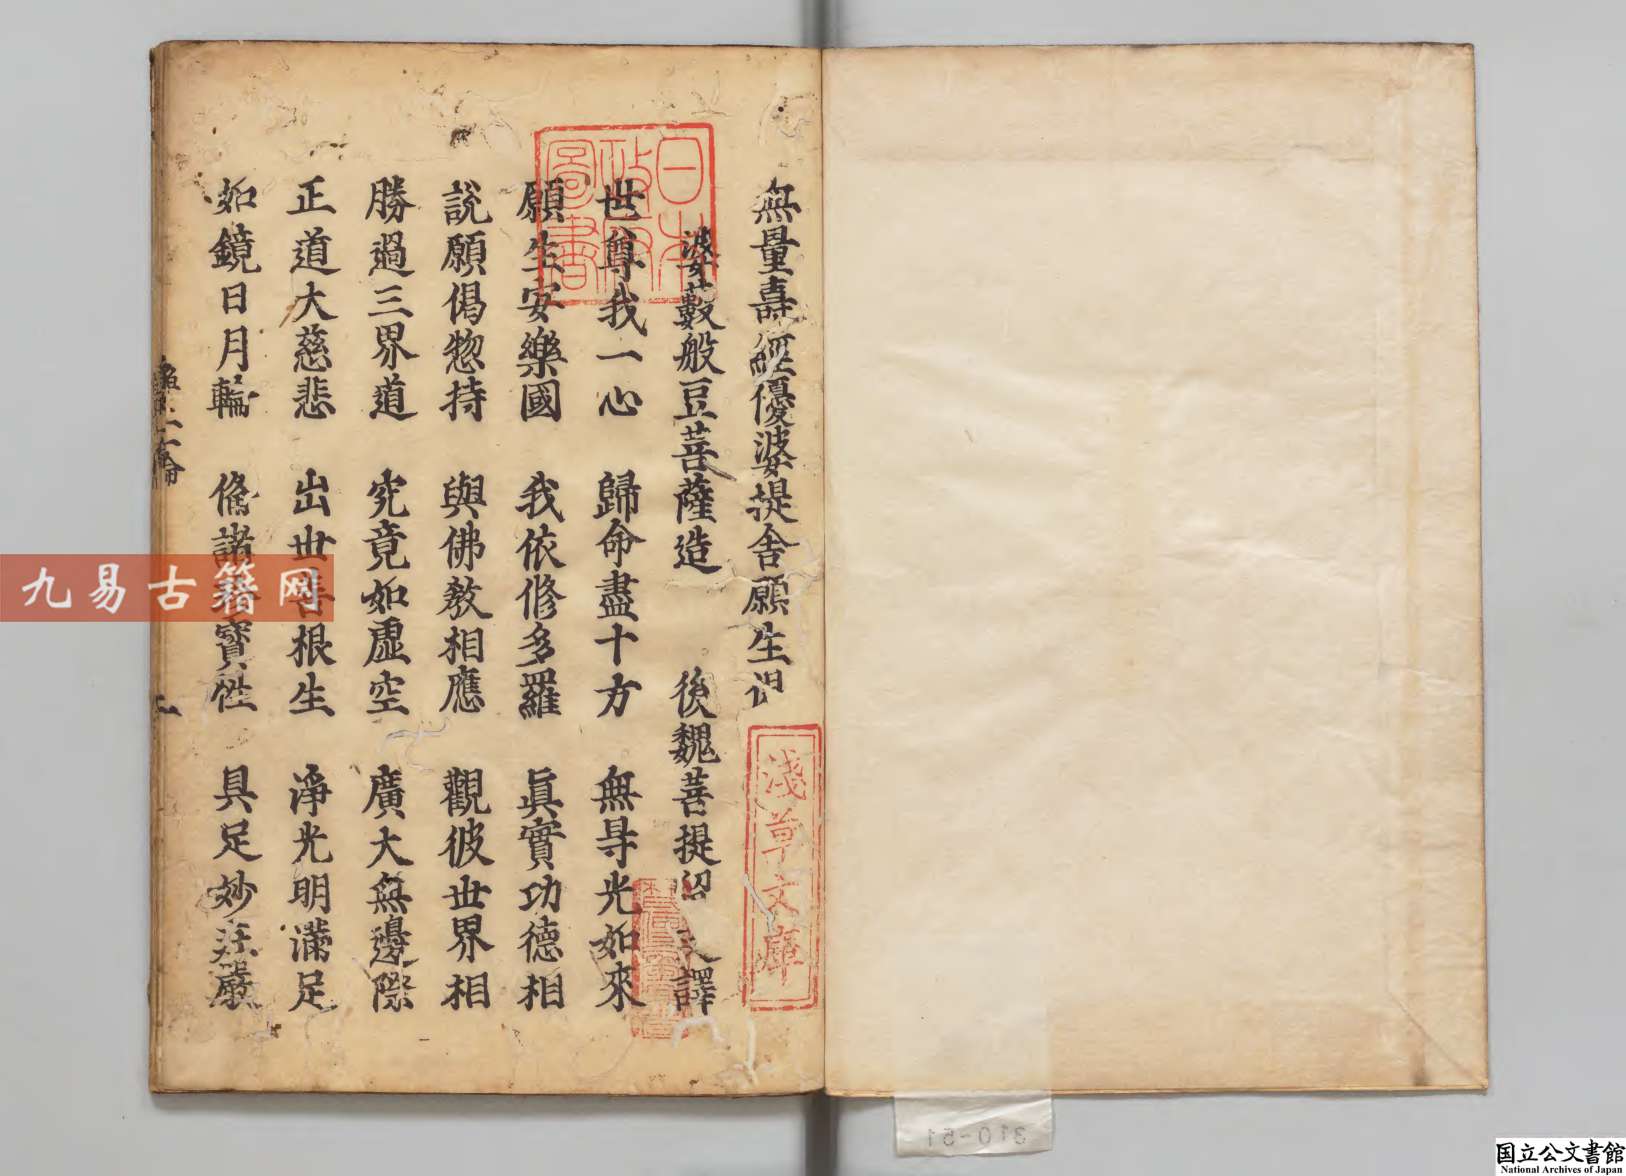 無量壽經優婆提舍願生
婆藪般豆菩薩造　後魏菩提　譯
世尊我一心　歸命盡十方　無㝵光如來
願生安樂國　我依修多羅　眞實功德相
說願偈惣持　與佛教相應　觀彼世界相
勝過三界道　究竟如虛空　廣大無邊際
正道大慈悲　出世善根生　淨光明滿足
如鏡日月輪　俻諸　寶性　具足妙莊嚴
日本政府圖書
淺草文庫
九易古籍网
310-51
国立公文書館
National Archives of Japan